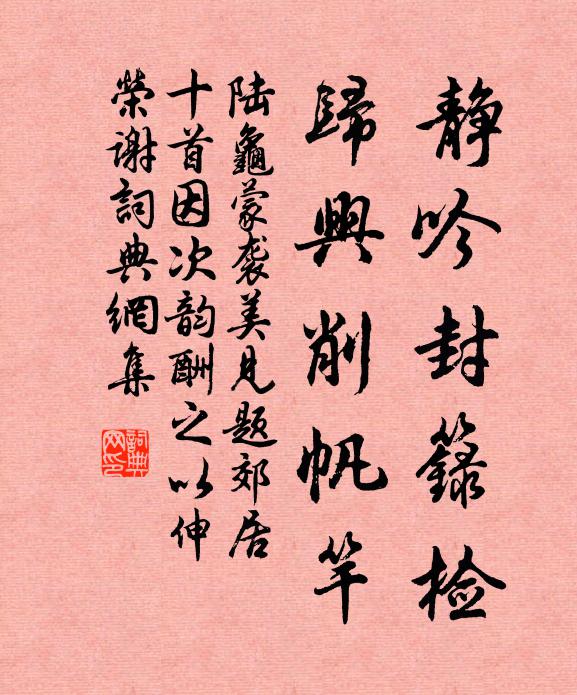 静吟封籙检
歸興削帆竿
陆龜蒙袭美見题郊居
十首因次韵酬之以伸
榮谢詞典網集
詞典
网印